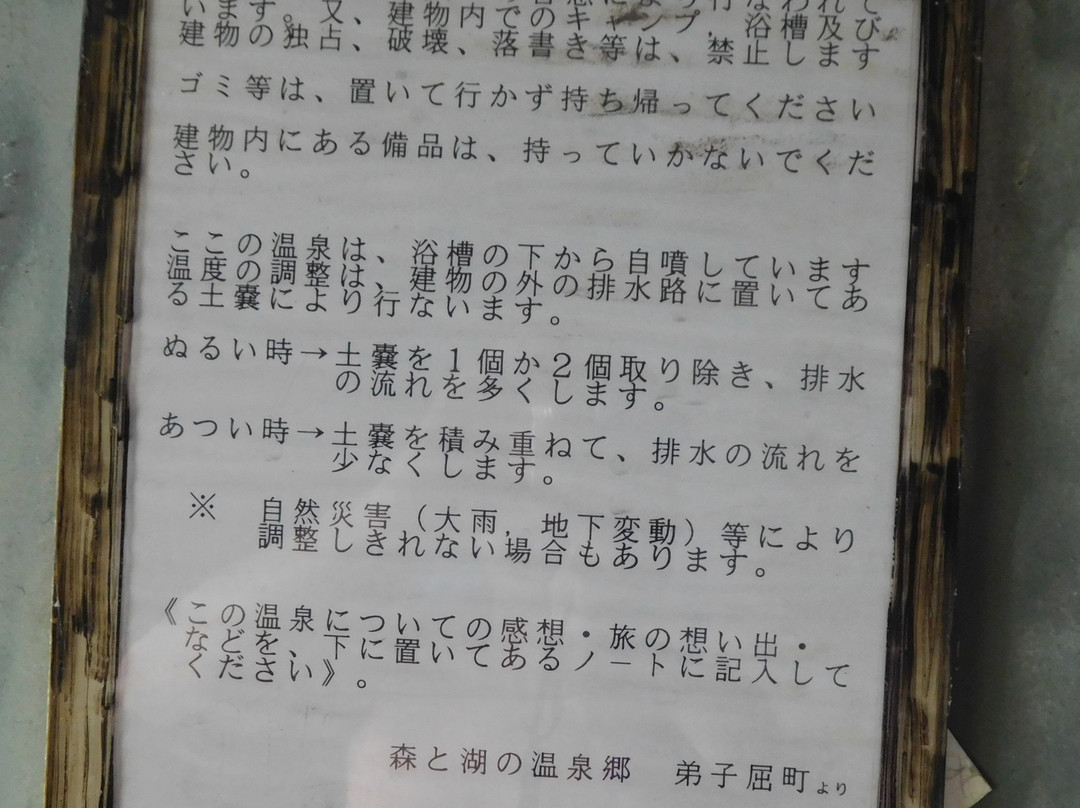 います。又、建物内でのキャンプ、浴槽及び
建物の独占、破壊、落書き等は、禁止します
ゴミ等は、置いて行かず持ち帰ってください
建物内にある備品は、持っていかないでくだ
さい。
ここの温泉は、浴槽の下から自噴しています
温度の調整は、建物の外の排水路に置いてあ
る土嚢により行ないます。
ぬるい時→土嚢を1個か2個取り除き、排水
の流れを多くします。
あつい時→土嚢を積み重ねて、排水の流れを
少なくします。
※ 自然災害(大雨,地下変動)等により
調整しきれない場合もあります。
《この温泉についての感想・旅の想い出・
などを、下に置いてあるノートに記入して
ください》。
森と湖の温泉郷 弟子屈町より